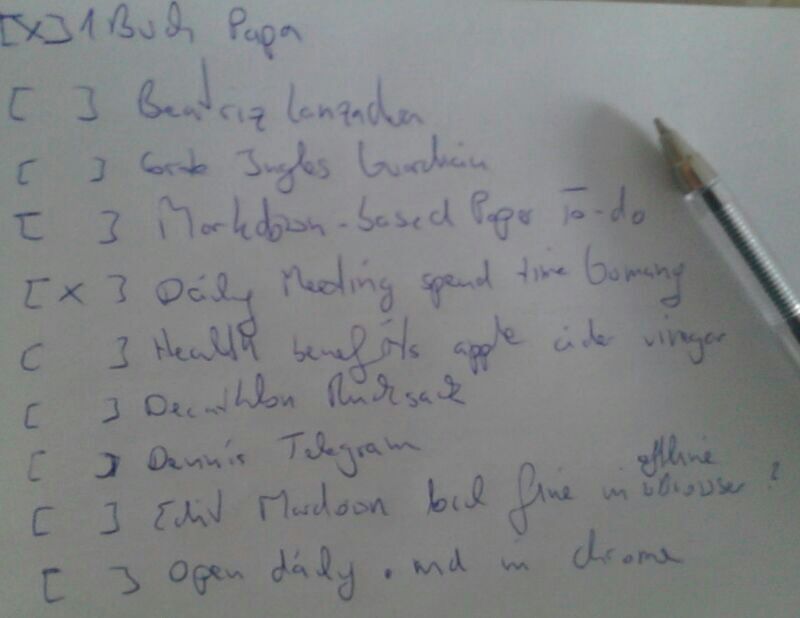 [X] 1 Buch Papa
[ ] Beatriz Lanzadera
[ ] Jungles Guardian
[ ] Markdown-based Paper To-do
[X] Dáily Meeting spend time Germany
[ ] Health benefits apple cider vinegar
[ ] Decathlon Rucksack
[ ] Dennis Telegram
offline
[ ] Edit Mardown local fine in browser?
[ ] Open dáily .md in chrome